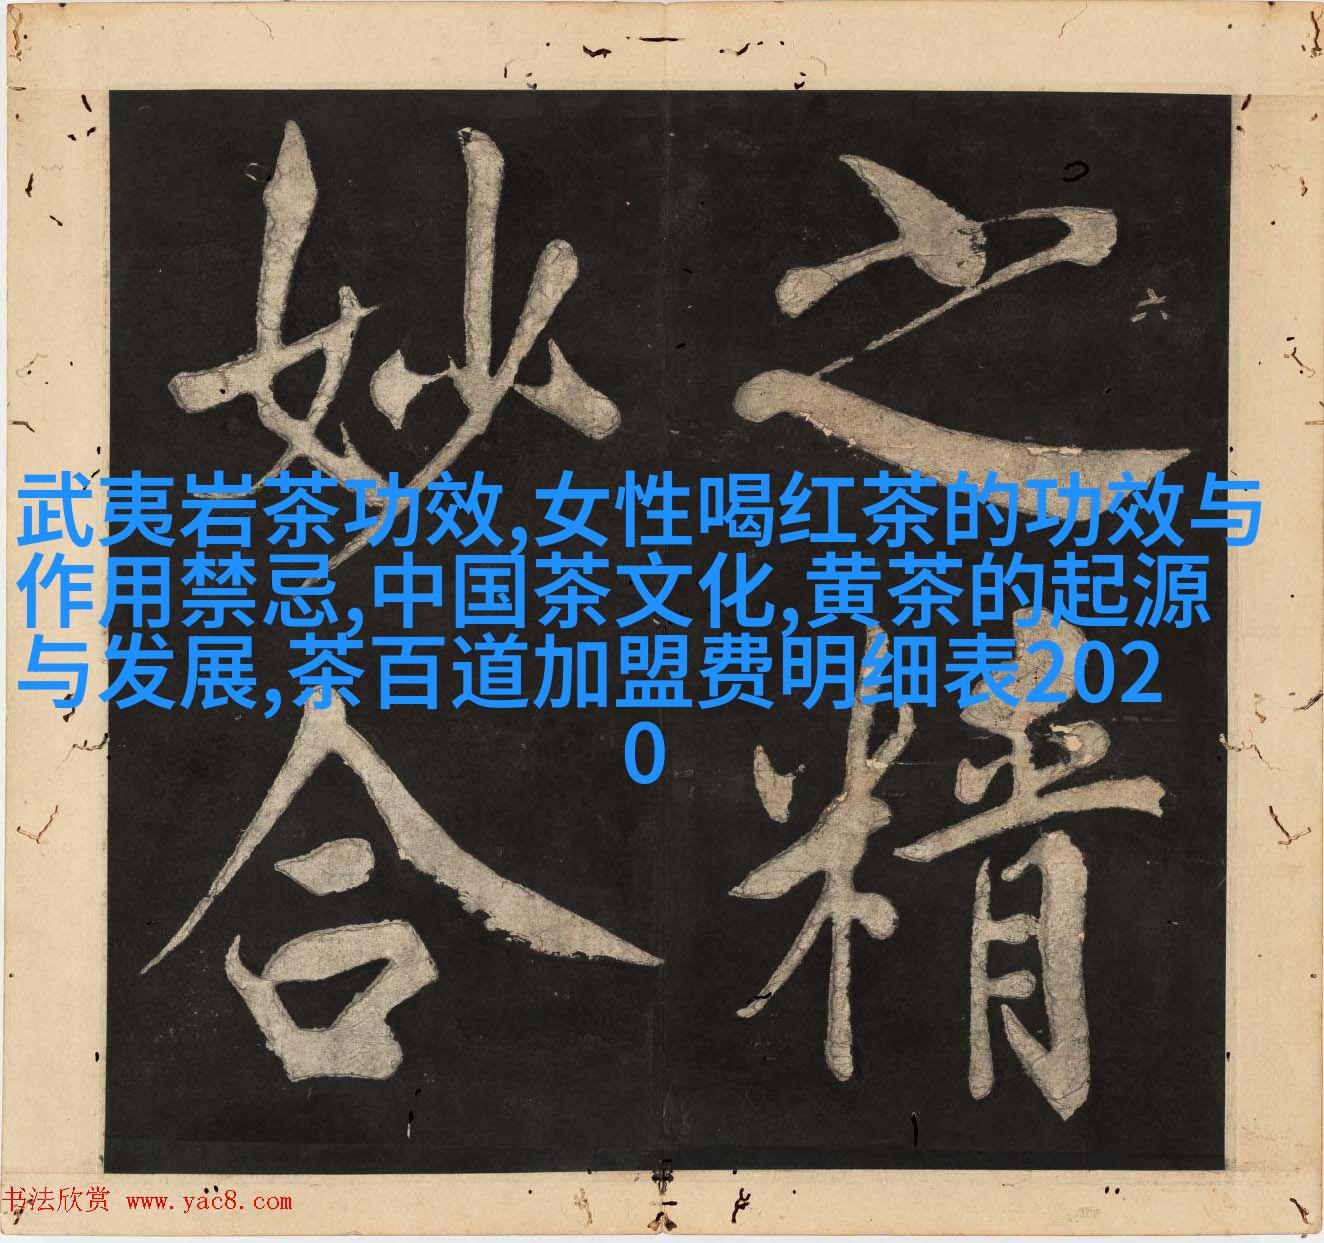 之精
妙合
六
武夷岩茶功效,女性喝红茶的功效与
作用禁忌,中国茶文化,黄茶的起源
与发展,茶百道加盟费明细表202
0
书法欣赏 www.yac8.com